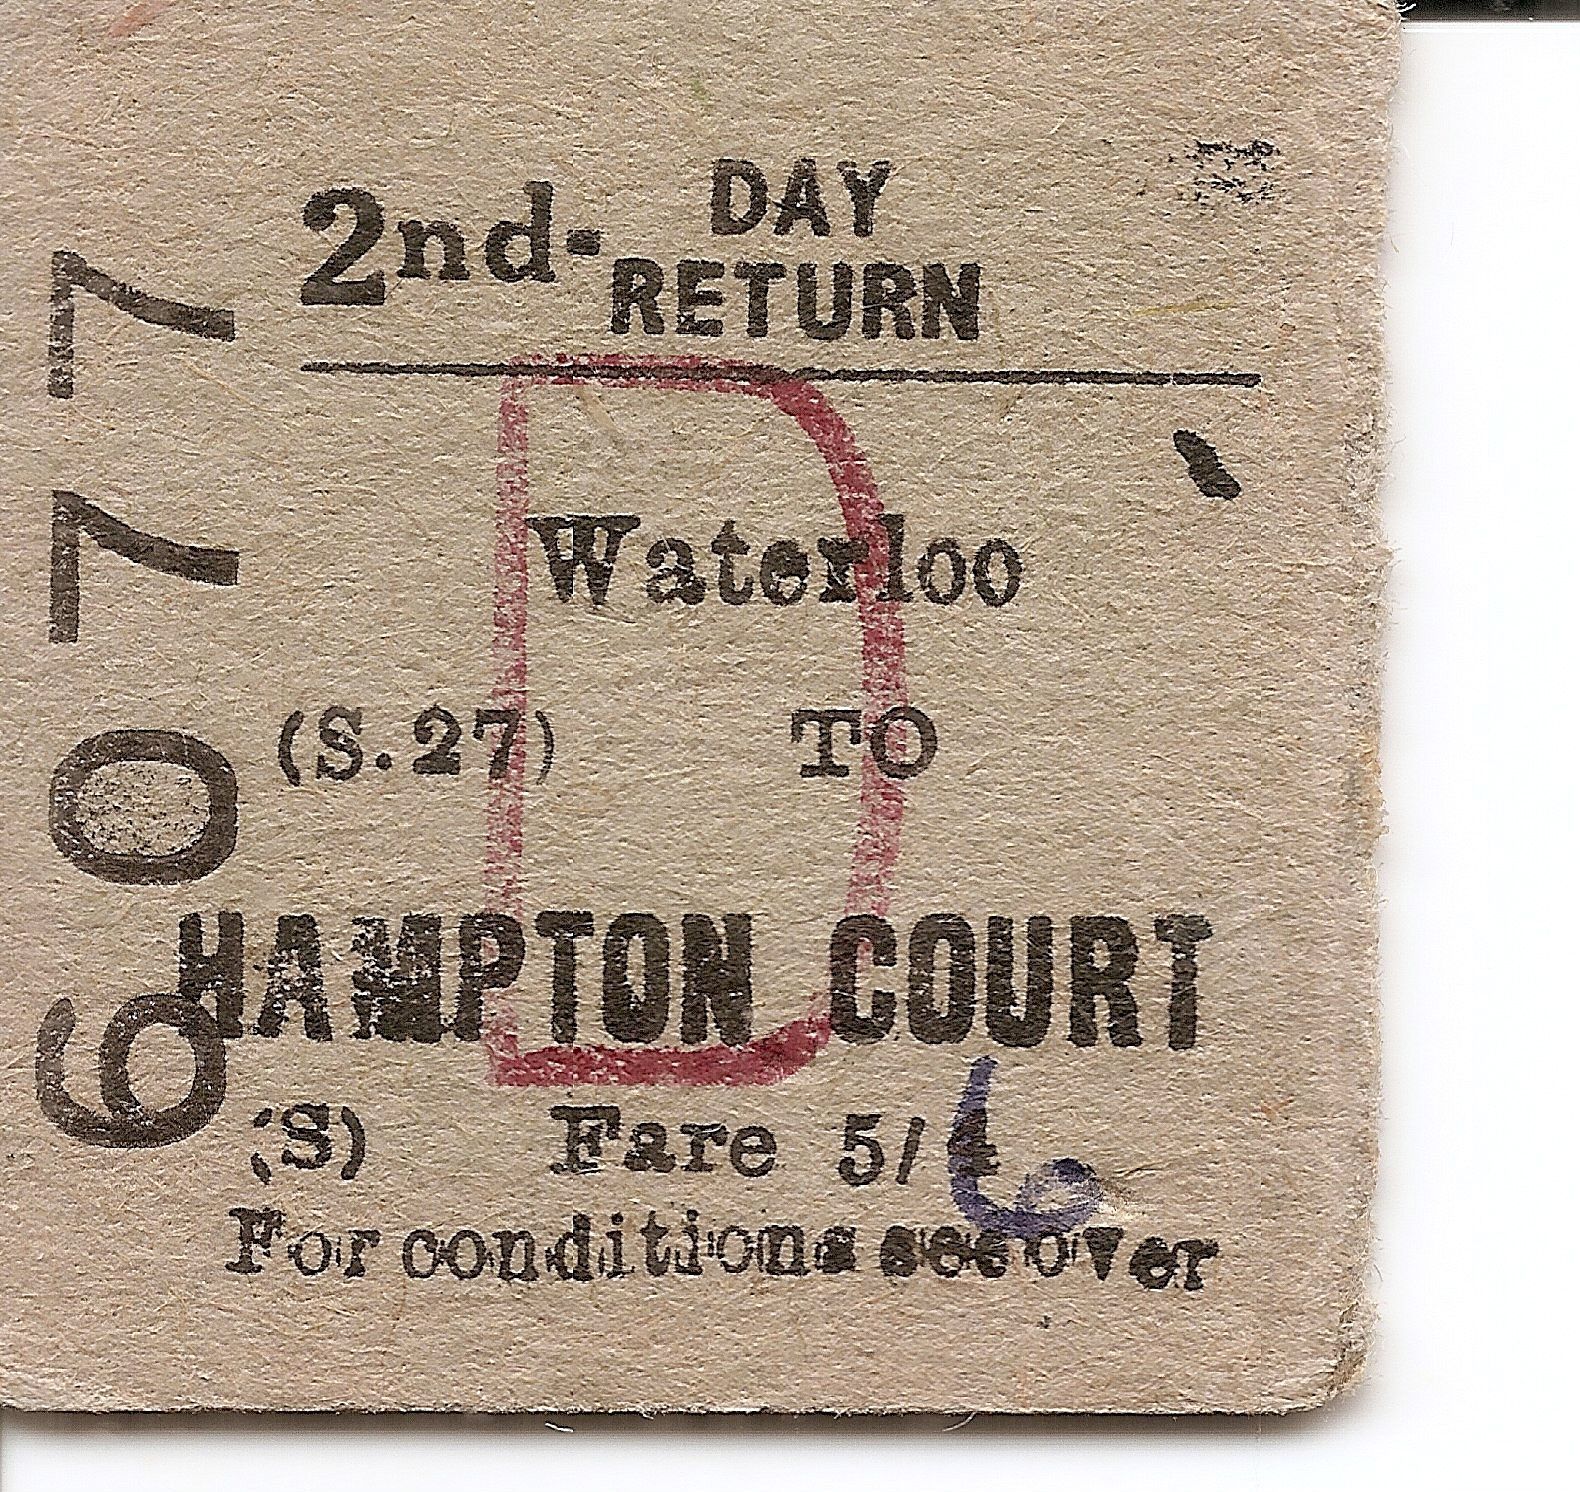 2nd-
DAY
RETURN
Waterloo
(S.27) TO
HAMPTON COURT
(S) Fare 5/6
For conditions see over
6077
D